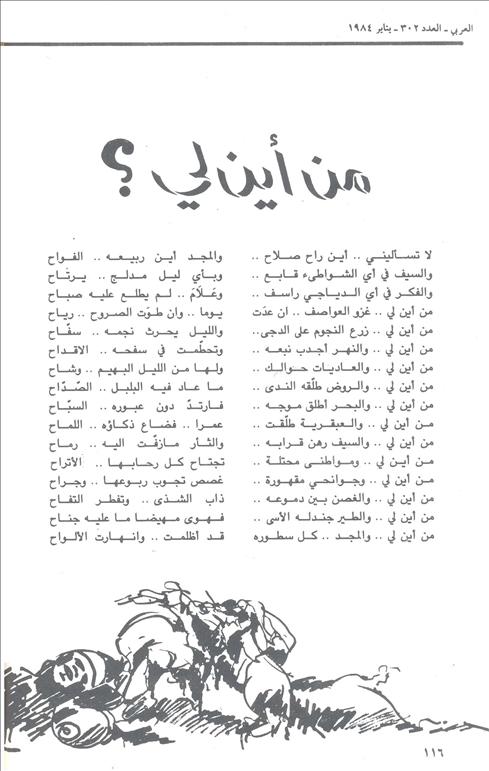 العربي - العدد ٣٠٢ - يناير ١٩٨٤
من أين لي ؟
لا تسأليني .. أين راح صلاح .. والمجد أين ربيعه .. الفواح
والسيف في أي الشواطىء قابع .. وبأي ليل مدلج .. يرتاح
والفكر في أي الدياجي راسف .. وعلام .. لم يطلع عليه صباح
من أين لي .. غزو العواصف .. ان عدت يوما .. وان طوت الصروح .. رياح
من أين لي .. زرع النجوم على الدجى.. والليل يحرث نجمه .. سفّاح
من أين لي .. والنهر أجدب نبعه .. وتحطّمت في سفحه .. الاقداح
من أين لي .. والعاديات حوالك .. ولها من الليل البهيم .. وشاح
من أين لي .. والروض طلّقه الندى .. ما عاد فيه البلبل .. الصّدّاح
من أين لي .. والبحر أطلق موجه .. فارتدّ دون عبوره .. السبّاح
من أين لي .. والعبقرية طلّقت .. عمرا .. فضاع ذكاؤه .. اللماح
من أين لي .. والسيف رهن قرابه .. والثأر مازفّت اليه .. رماح
من أين لي .. ومواطنى محتلة .. تجتاح كل رحابها .. الأتراح
من أين لي .. وجوانحي مقهورة .. غصص تجوب ربوعها .. وجراح
من أين لي .. والغصن بين دموعه .. ذاب الشذى .. وتفطر التفاح
من أين لي .. والطير جندله الأسى .. فهوى مهيضا ما عليه جناح
من أين لي .. والمجد .. كل سطوره قد أظلمت .. وانهارت الألواح
١١٦